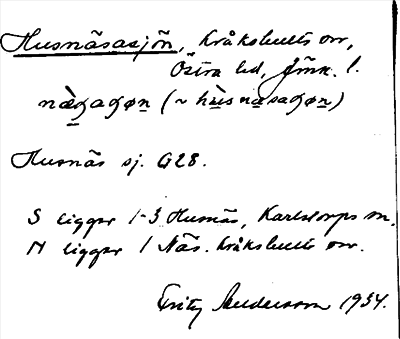 Husnäsasjön, Kråkshults sn,
Östra hd, Jönk. l.
Husnäs sj. G28.
S ligger 1-3 Husnäs, Karlstorps sn.
N ligger 1 Näs. Kråkshults sn.
Fritz Andersson 1934.